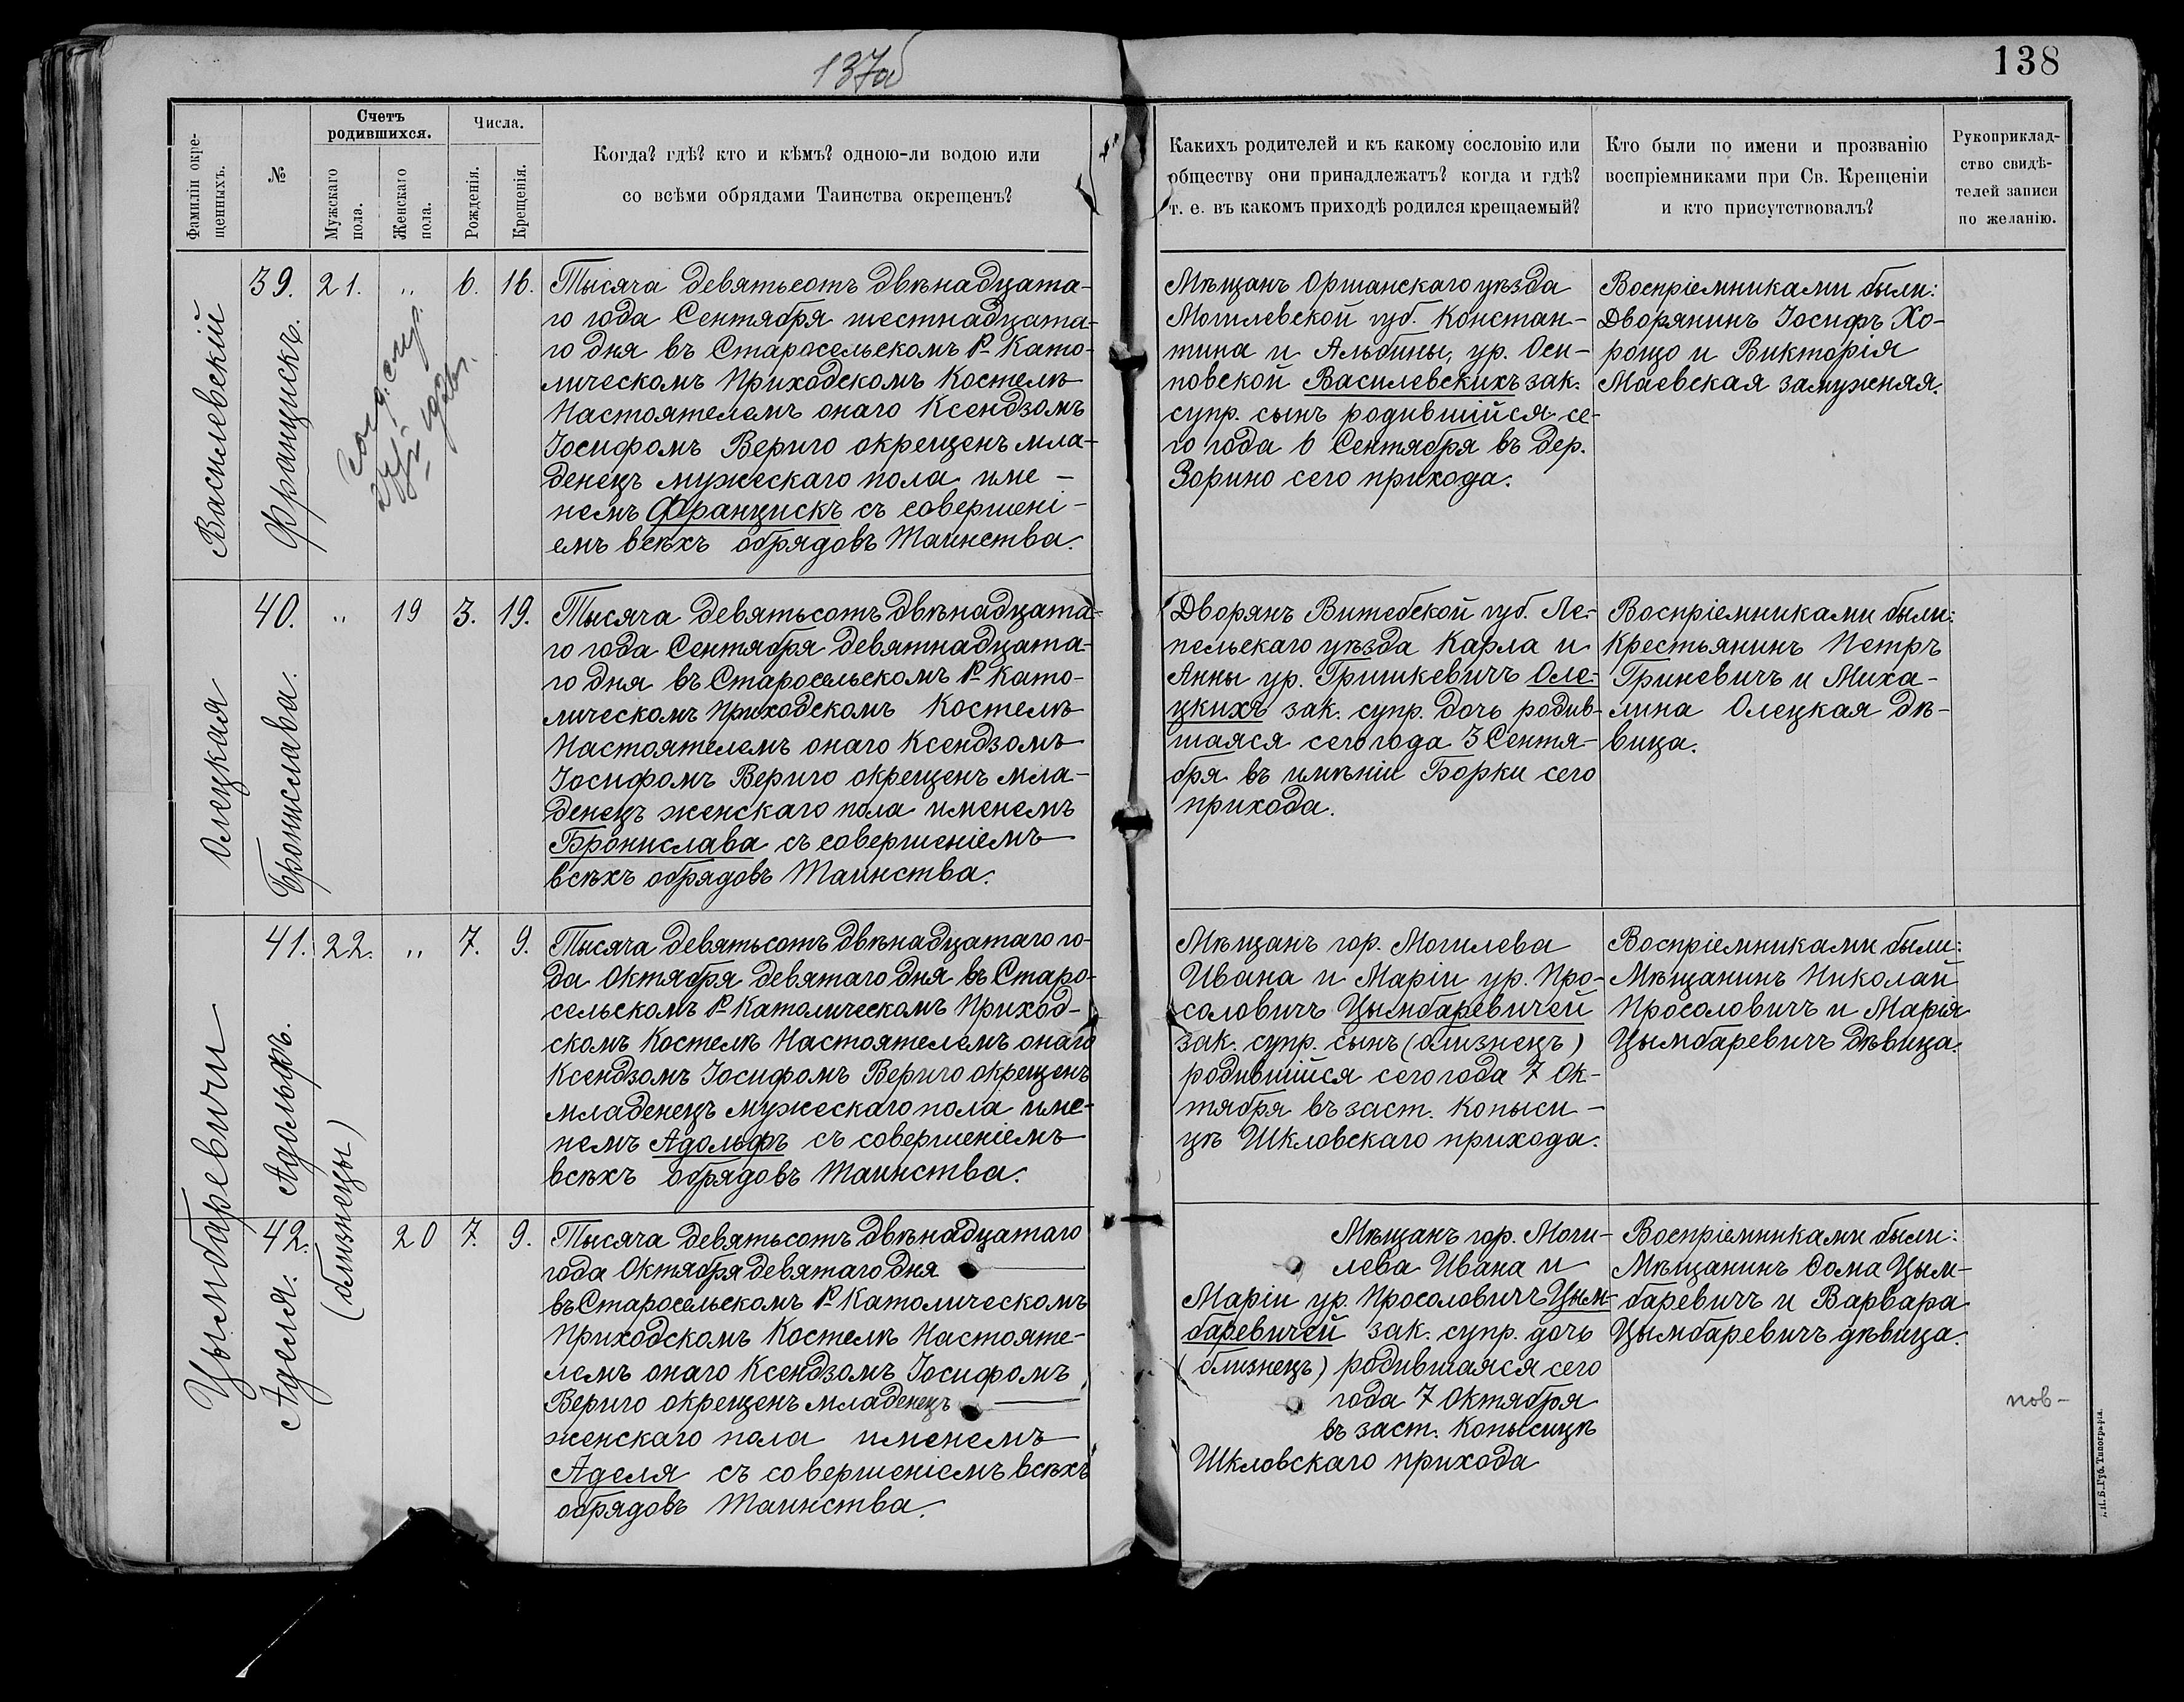 137об
138
Фамиліи окре-
щенныхъ.
№
Счетъ
родившихся.
Мужскаго
пола.
Женскаго
пола.
Числа.
Рожденія.
Крещенія.
Когда? гдѣ? кто и кѣмъ? одною-ли водою или
со всѣми обрядами Таинства окрещенъ?
Какихъ родителей и къ какому сословію или
обществу они принадлежатъ? когда и гдѣ?
т. е. въ какомъ приходѣ родился крещаемый?
Кто были по имени и прозванію
воспріемниками при Св. Крещеніи
и кто присутствовалъ?
Рукоприклад-
ство свидѣ-
телей записи
по желанію.
Василевскій
39.
Францискъ.
21.
"
6.
16.
Тысяча девятьсотъ двѣнадцата-
го года Сентября шестнадцата-
го дня въ Старосельскомъ Р-Като-
лическомъ Приходскомъ Костелѣ
Настоятелемъ онаго Ксендзомъ
Іосифомъ Вериго окрещенъ мла-
денецъ мужескаго пола име-
немъ Францискъ съ совершені-
емъ всѣхъ обрядовъ Таинства.
Мѣщанъ Оршанскаго уѣзда
Могилевской губ. Констан-
тина и Альбины, ур. Оси-
повской Василевскихъ зак.
супр. сынъ родившійся се-
го года 6 Сентября въ дер.
Зорино сего прихода.
Воспріемниками были:
Дворянинъ Іосифъ Хо-
рощо и Викторія
Маевская замужняя.
Олецкая
40.
Бронислава.
"
19
3.
19.
Тысяча девятьсотъ двѣнадцата-
го года Сентября девятнадцата-
го дня въ Старосельскомъ Р-Като-
лическомъ Приходскомъ Костелѣ
Настоятелемъ онаго Ксендзомъ
Іосифомъ Вериго окрещенъ мла-
денецъ женскаго пола именемъ
Бронислава съ совершеніемъ
всѣхъ обрядовъ Таинства.
Дворянъ Витебской губ. Ле-
пельскаго уѣзда Карла и
Анны ур. Гришкевичъ Оле-
цкихъ зак. супр. дочь родив-
шаяся сего года 3 Сентя-
бря въ имѣніи Борки сего
прихода.
Воспріемниками были:
Крестьянинъ Петръ
Гриневичъ и Миха-
лина Олецкая дѣ-
вица.
Цымбаревичи
41.
Адольфъ.
(близнецы)
22.
"
7.
9.
Тысяча девятьсотъ двѣнадцатаго го-
да Октября девятаго дня въ Старо-
сельскомъ Р-Католическомъ Приход-
скомъ Костелѣ Настоятелемъ онаго
Ксендзомъ Іосифомъ Вериго окрещенъ
младенецъ мужескаго пола име-
немъ Адольфъ съ совершеніемъ
всѣхъ обрядовъ Таинства.
Мѣщанъ гор. Могилева
Ивана и Маріи ур. Про-
соловичъ Цымбаревичей
зак. супр. сынъ (близнецъ)
родившійся сего года 7 Ок-
тября въ заст. Копыси-
цѣ Шкловскаго прихода.
Воспріемниками были:
Мѣщанинъ Николай
Просоловичъ и Марія
Цымбаревичъ дѣвица.
42.
Аделя.
20
7.
9.
Тысяча девятьсотъ двѣнадцатаго
года Октября девятаго дня
въ Старосельскомъ Р-Католическомъ
Приходскомъ Костелѣ Настояте-
лемъ онаго Ксендзомъ Іосифомъ
Вериго окрещенъ младенецъ
женскаго пола именемъ
Аделя съ совершеніемъ всѣхъ
обрядовъ Таинства.
Мѣщанъ гор. Моги-
лева Ивана и
Маріи ур. Просоловичъ Цым-
баревичей зак. супр. дочь
(близнецъ) родившаяся сего
года 7 Октября
въ заст. Копысицѣ
Шкловскаго прихода
Воспріемниками были:
Мѣщанинъ Фома Цым-
баревичъ и Варвара
Цымбаревичъ дѣвица.
пов-